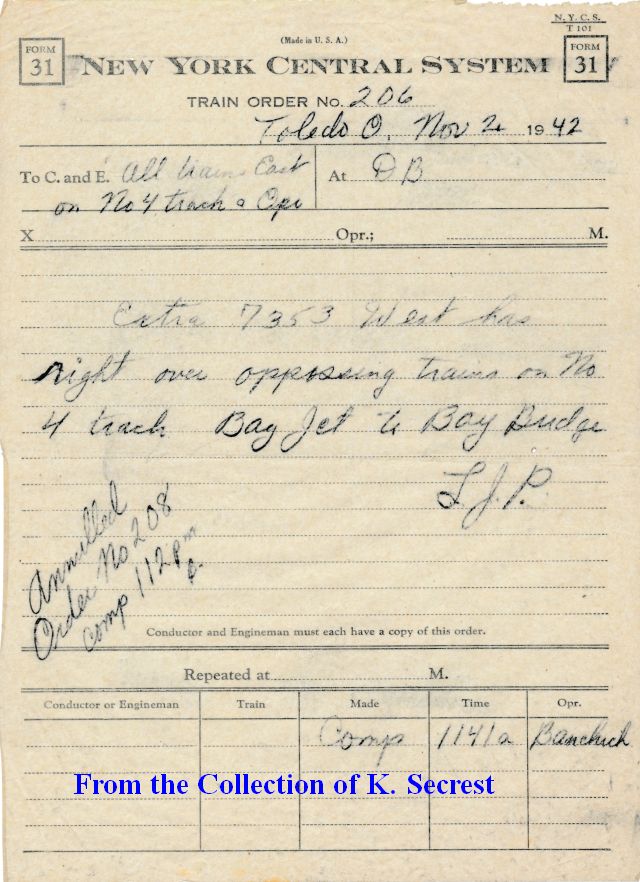 N. Y. C. S.
T 101
(Made in U. S. A.)
FORM 31
NEW YORK CENTRAL SYSTEM
FORM 31
TRAIN ORDER No. 206
Toledo O. Nov 2 1942
To C. and E. All trains East At DB
on No 4 track & Opr
X Opr.; M.
Extra 7353 West has
right over oppossing trains on No
4 track Bay Jct to Bay Bridge
L.J.P.
Annulled
Order No 208
Comp 112 pm
Conductor and Engineman must each have a copy of this order.
Repeated at M.
Conductor or Engineman Train Made Time Opr.
Comp 1141a
From the Collection of K. Secrest